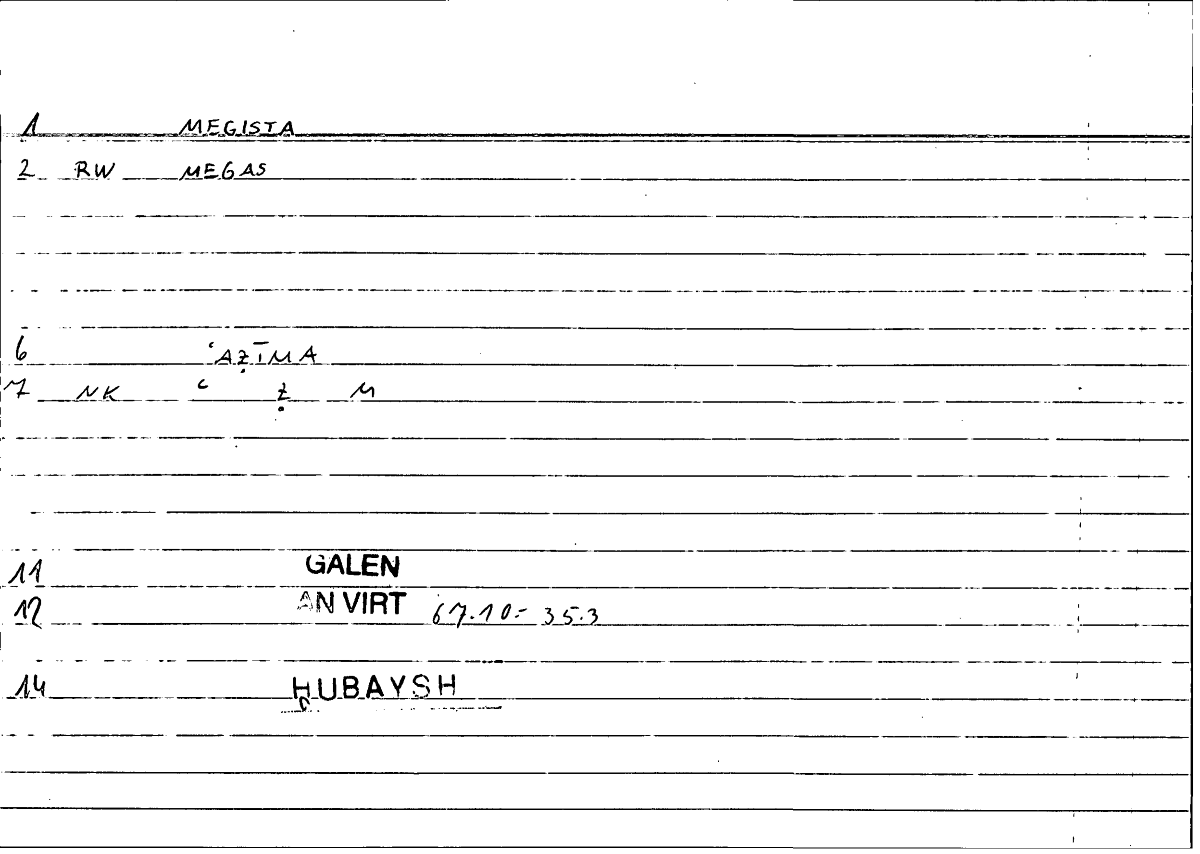 1 MEGISTA
2 RW MEGAS
6 ʿAẒĪMA
7 NK ʿ Ẓ M
11 GALEN
12 AN VIRT 67.10 = 35.3
14 ḤUBAYSH